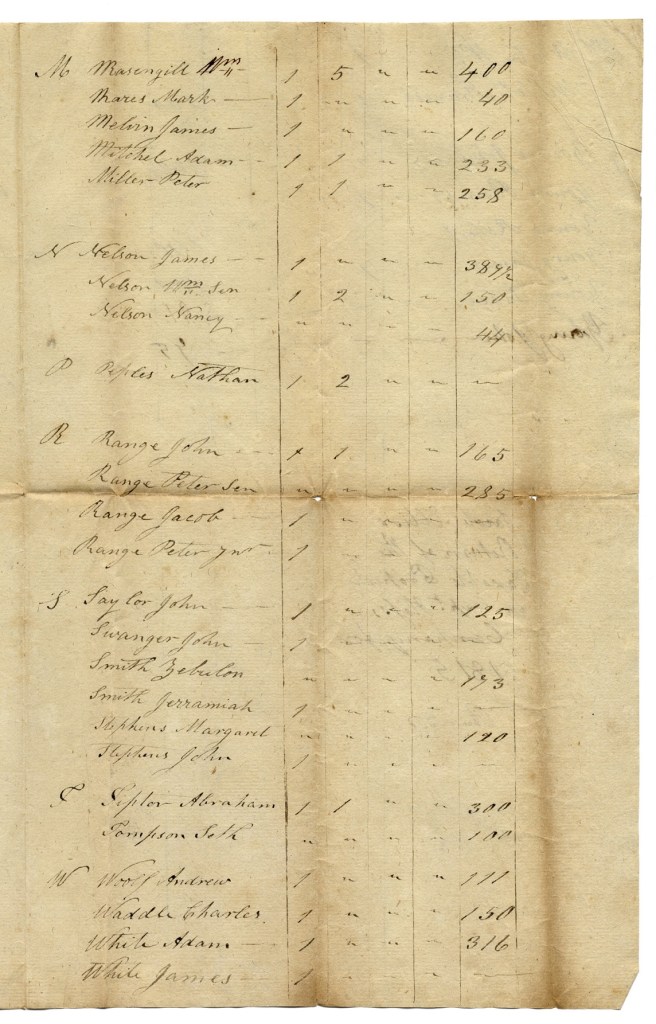 M Masengill Wm 1 5 " " 400
Mares Mark 1 " " " 40
Melvin James 1 " " " 160
Mitchel Adam 1 1 " " 233
Miller Peter 1 1 " " 258
N Nelson James 1 " " " 389½
Nelson Wm Sen 1 2 " " 150
Nelson Nancy " " " " 44
P Peples Nathan 1 2 " " —
R Range John 1 1 " " 165
Range Peter Sen " " " " 285
Range Jacob 1 " "
Range Peter Jnr 1 "
S Saylor John 1 " " " 125
Swanger John 1 " " "
Smith Zebulon " " " " 173
Smith Jerramiah 1 " " " —
Stephens Margaret " " " " 120
Stephens John 1 " " " —
T Tiptor Abraham 1 1 " " 300
Tompson Seth " " " " 100
W Woolf Andrew 1 " " " 111
Waddle Charles 1 " " " 150
White Adam 1 " " " 316
White James 1 " " " —